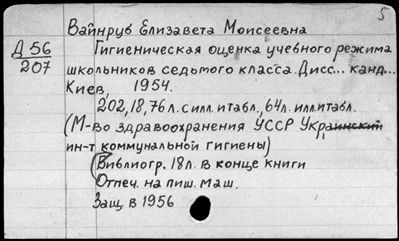 5
Вайнруб Елизавета Моисеевна
Д 56
207
Гигиеническая оценка учебного режима
школьников седьмого класса. Дисс... канд...
Киев, 1954.
202, 18, 76 л. с илл. и табл., 64 л. илл. и табл.
(М-во здравоохранения УССР Украинский
ин-т коммунальной гигиены)
(Библиогр. 18 л. в конце книги
Отпеч. на пиш. маш.
Защ. в 1956